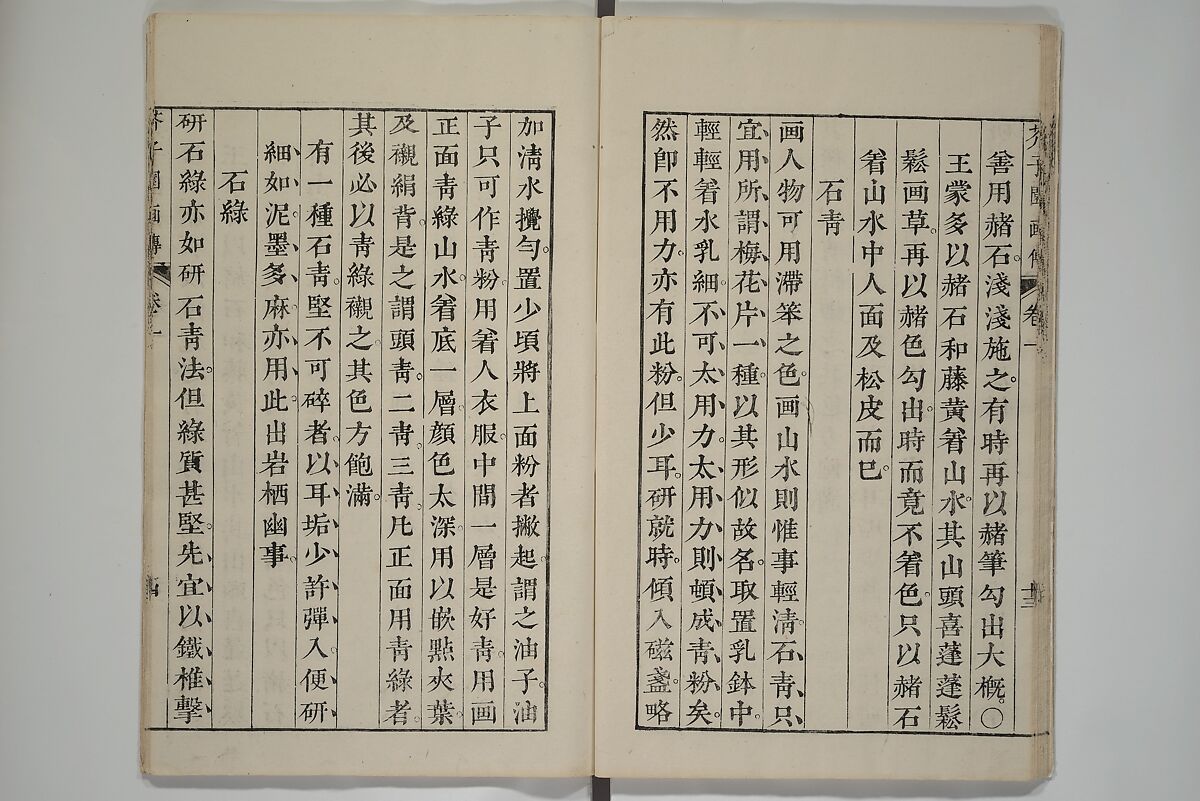 芥子園画傳 卷一 十三
善用赭石。淺淺施之。有時再以赭筆勾出大概。〇
王蒙多以赭石和藤黃着山水。其山頭喜蓬蓬鬆
鬆画草。再以赭色勾出。時而竟不着色。只以赭石
着山水中人面及松皮而已。
石靑
画人物可用滯笨之色。画山水則惟事輕淸。石靑只
宜用所謂梅花片一種。以其形似故名。取置乳鉢中。
輕輕着水乳細。不可太用力。太用力則頓成靑粉矣。
然卽不用力。亦有此粉。但少耳。研就時。傾入磁盞。略
加淸水攪勻。置少頃將上面粉者撇起。謂之油子。油
子只可作靑粉用着人衣服。中間一層是好靑。用画
正面靑綠山水。着底一層。顔色太深。用以嵌點夾葉
及襯絹背。是之謂頭靑。二靑。三靑。凡正面用靑綠者。
其後必以靑綠襯之。其色方飽滿。
有一種石靑。堅不可碎者。以耳垢少許彈入。便研
細如泥。墨多麻亦用此。出岩栖幽事。
石綠
研石綠亦如研石靑法。但綠質甚堅。先宜以鐵椎擊
芥子園画傳 卷一 十四